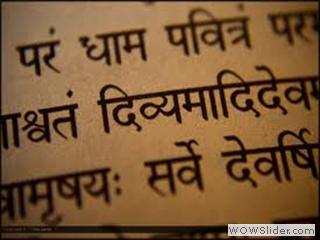 परं धाम पवित्रं परम
ाश्वतं दिव्यमादिदेवम
वामृषयः सर्वे देवर्षि
WOWSlider.com